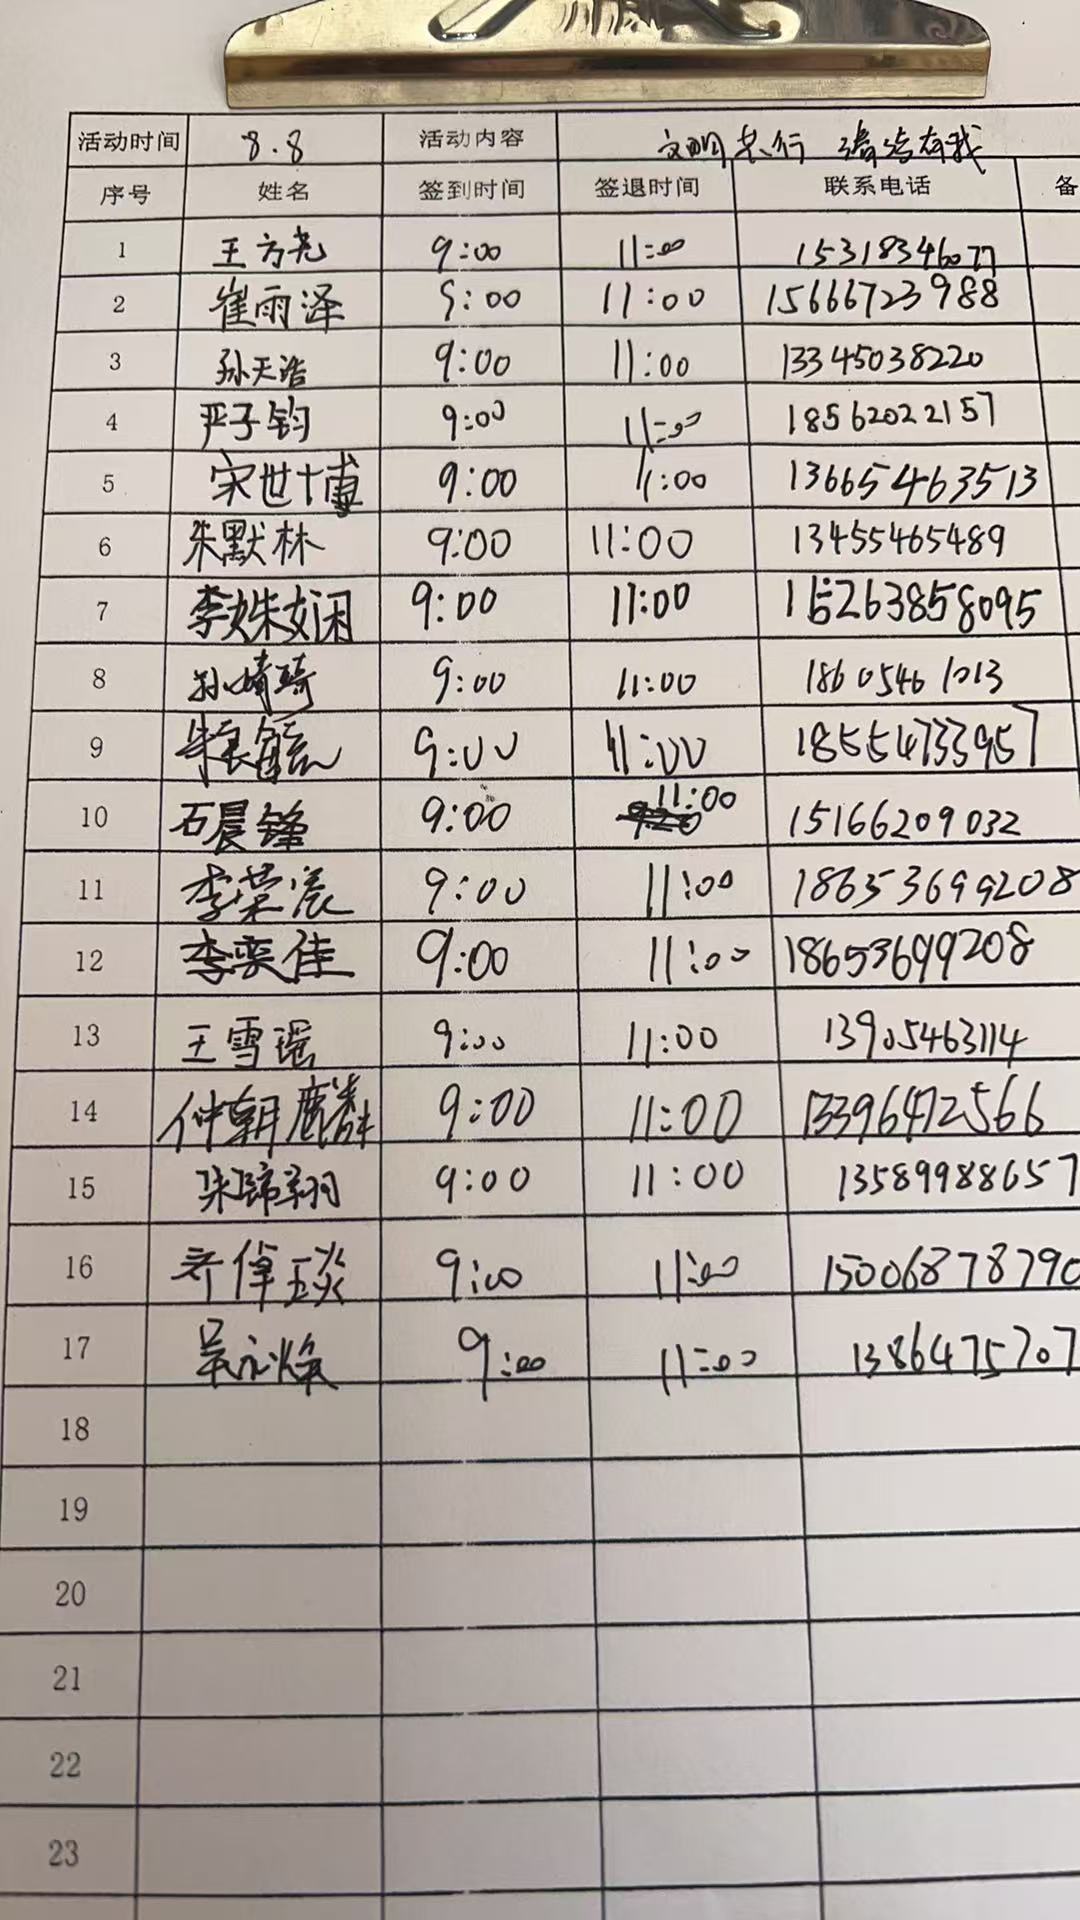 活动时间 8.8 活动内容 文明其行 清洁有我
序号 姓名 签到时间 签退时间 联系电话 备
1 王方尧 9:00 11:00 15318346077
2 崔雨泽 9:00 11:00 15666723988
3 孙天浩 9:00 11:00 13345038220
4 严子钧 9:00 11:00 18562022157
5 宋世博 9:00 11:00 13665463513
6 朱默林 9:00 11:00 13455465489
7 李姝娴 9:00 11:00 15263858095
8 孙婧琦 9:00 11:00 18605461013
9 9:00 11:00 18554733957
10 石晨锋 9:00 11:00 15166209032
11 李荣宸 9:00 11:00 18653699208
12 李奕佳 9:00 11:00 18653699208
13 王雪瑶 9:00 11:00 13905463114
14 仲朝麟 9:00 11:00 13396472566
15 9:00 11:00 13589988657
16 齐倬琰 9:00 11:00 15006878790
17 吴永焕 9:00 11:00 1386475707
18
19
20
21
22
23